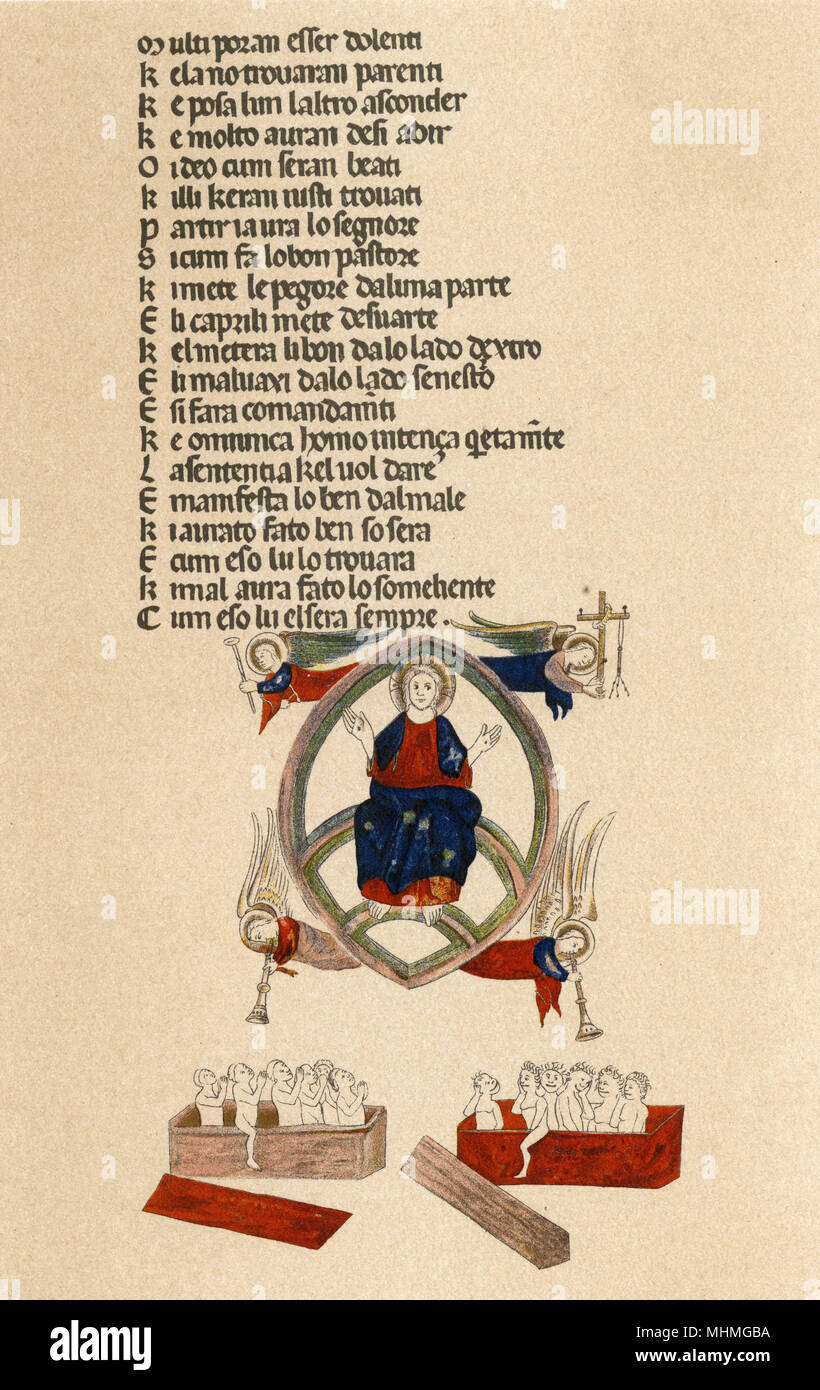 M ulti poran esser dolenti
k ela no trovaran parenti
k e posa lun laltro asconder
k e molto auran desi abir
O i deo cum seran beati
k illi keran iusti trouati
P artir iaura lo segnore
S icum fa lo bon pastore
k i mete le pegore daluna parte
E li caprili mete desuarte
k el metera li bon da lo lado dextro
E li maluaxi da lo lado senestro
E si fara comandam̄ti
k e omiunca homo intença q̄etam̄te
L a sententia kel uol dare
E manifesta lo ben dal male
k i aurato fato ben so sera
E cum eso lu lo trouara
k i mal aura fato lo somehente
C um eso lu el sera sempre .
alamy
alamy
alamy
alamy
alamy
Image ID: MHMGBA
www.alamy.com